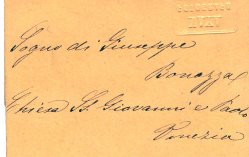 Sogno di Giuseppe
Bonazza
Chiesa SS. Giovanni e Paolo
Venezia